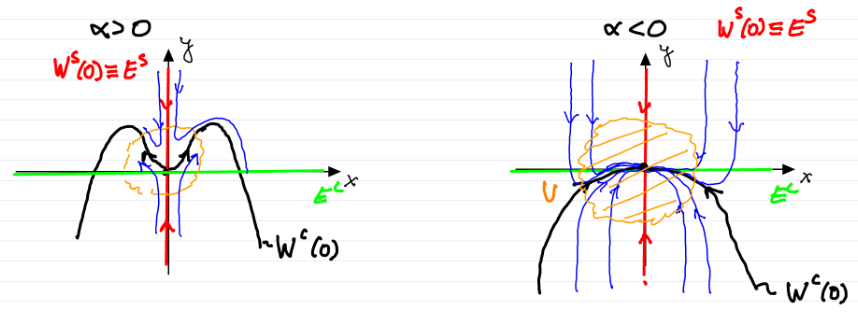 α>0
y
Wˢ(0)≡Eˢ
x
Eᶜ
Wᶜ(0)
α<0
Wˢ(0)≡Eˢ
y
x
U
Eᶜ
Wᶜ(0)